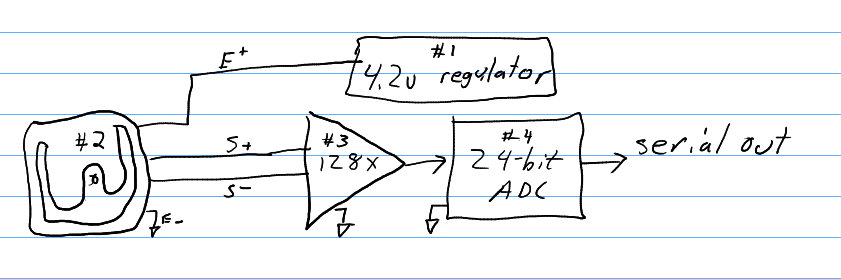 E+
#1
4.2v regulator
#2
S+
S-
E-
#3
128x
#4
24-bit
ADC
serial out